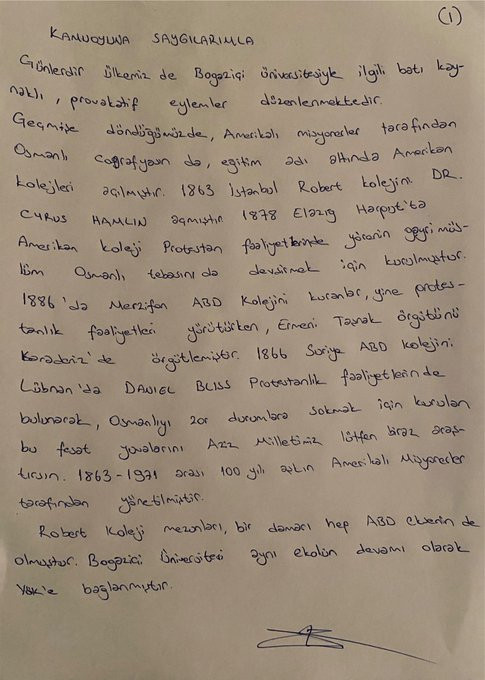 (1)
KAMUOYUNA SAYGILARIMLA
Günlerdir ülkemiz de Bogaziçi üniversitesiyle ilgili batı kay-
naklı, provakatif eylemler düzenlenmektedir.
Geçmişe döndüğümüzde, Amerikalı misyonerler tarafından
Osmanlı coğrafyasın da, eğitim adı altında Amerikan
kolejleri açılmıştır. 1863 İstanbul Robert kolejini DR.
CYRUS HAMLIN açmıştır 1878 Elazığ Harput'ta
Amerikan koleji Protestan faaliyetlerinde yörenin gayrimüs-
lüm Osmanlı tebasını da devşirmek için kurulmuştur.
1886'da Merzifon ABD Kolejini kuranlar, yine protes-
tanlık faaliyetleri yürütürken, Ermeni Taşnak örgütünü
Karadeniz'de örgütlemiştir. 1866 Suriye ABD kolejini
Lübnan'da DANIEL BLISS Protestanlık faaliyetlerin de
bulunarak, Osmanlıyı zor durumlara sokmak için kurulan
bu fesat yuvalarını Aziz Milletimiz lütfen biraz araş-
tırsın. 1863-1971 arası 100 yılı aşkın Amerikalı Misyonerler
tarafından yönetilmiştir.
Robert Koleji mezunları, bir damarı hep ABD ellerin de
olmuştur. Bogaziçi Üniversitesi aynı ekolün devamı olarak
YÖK'e bağlanmıştır.